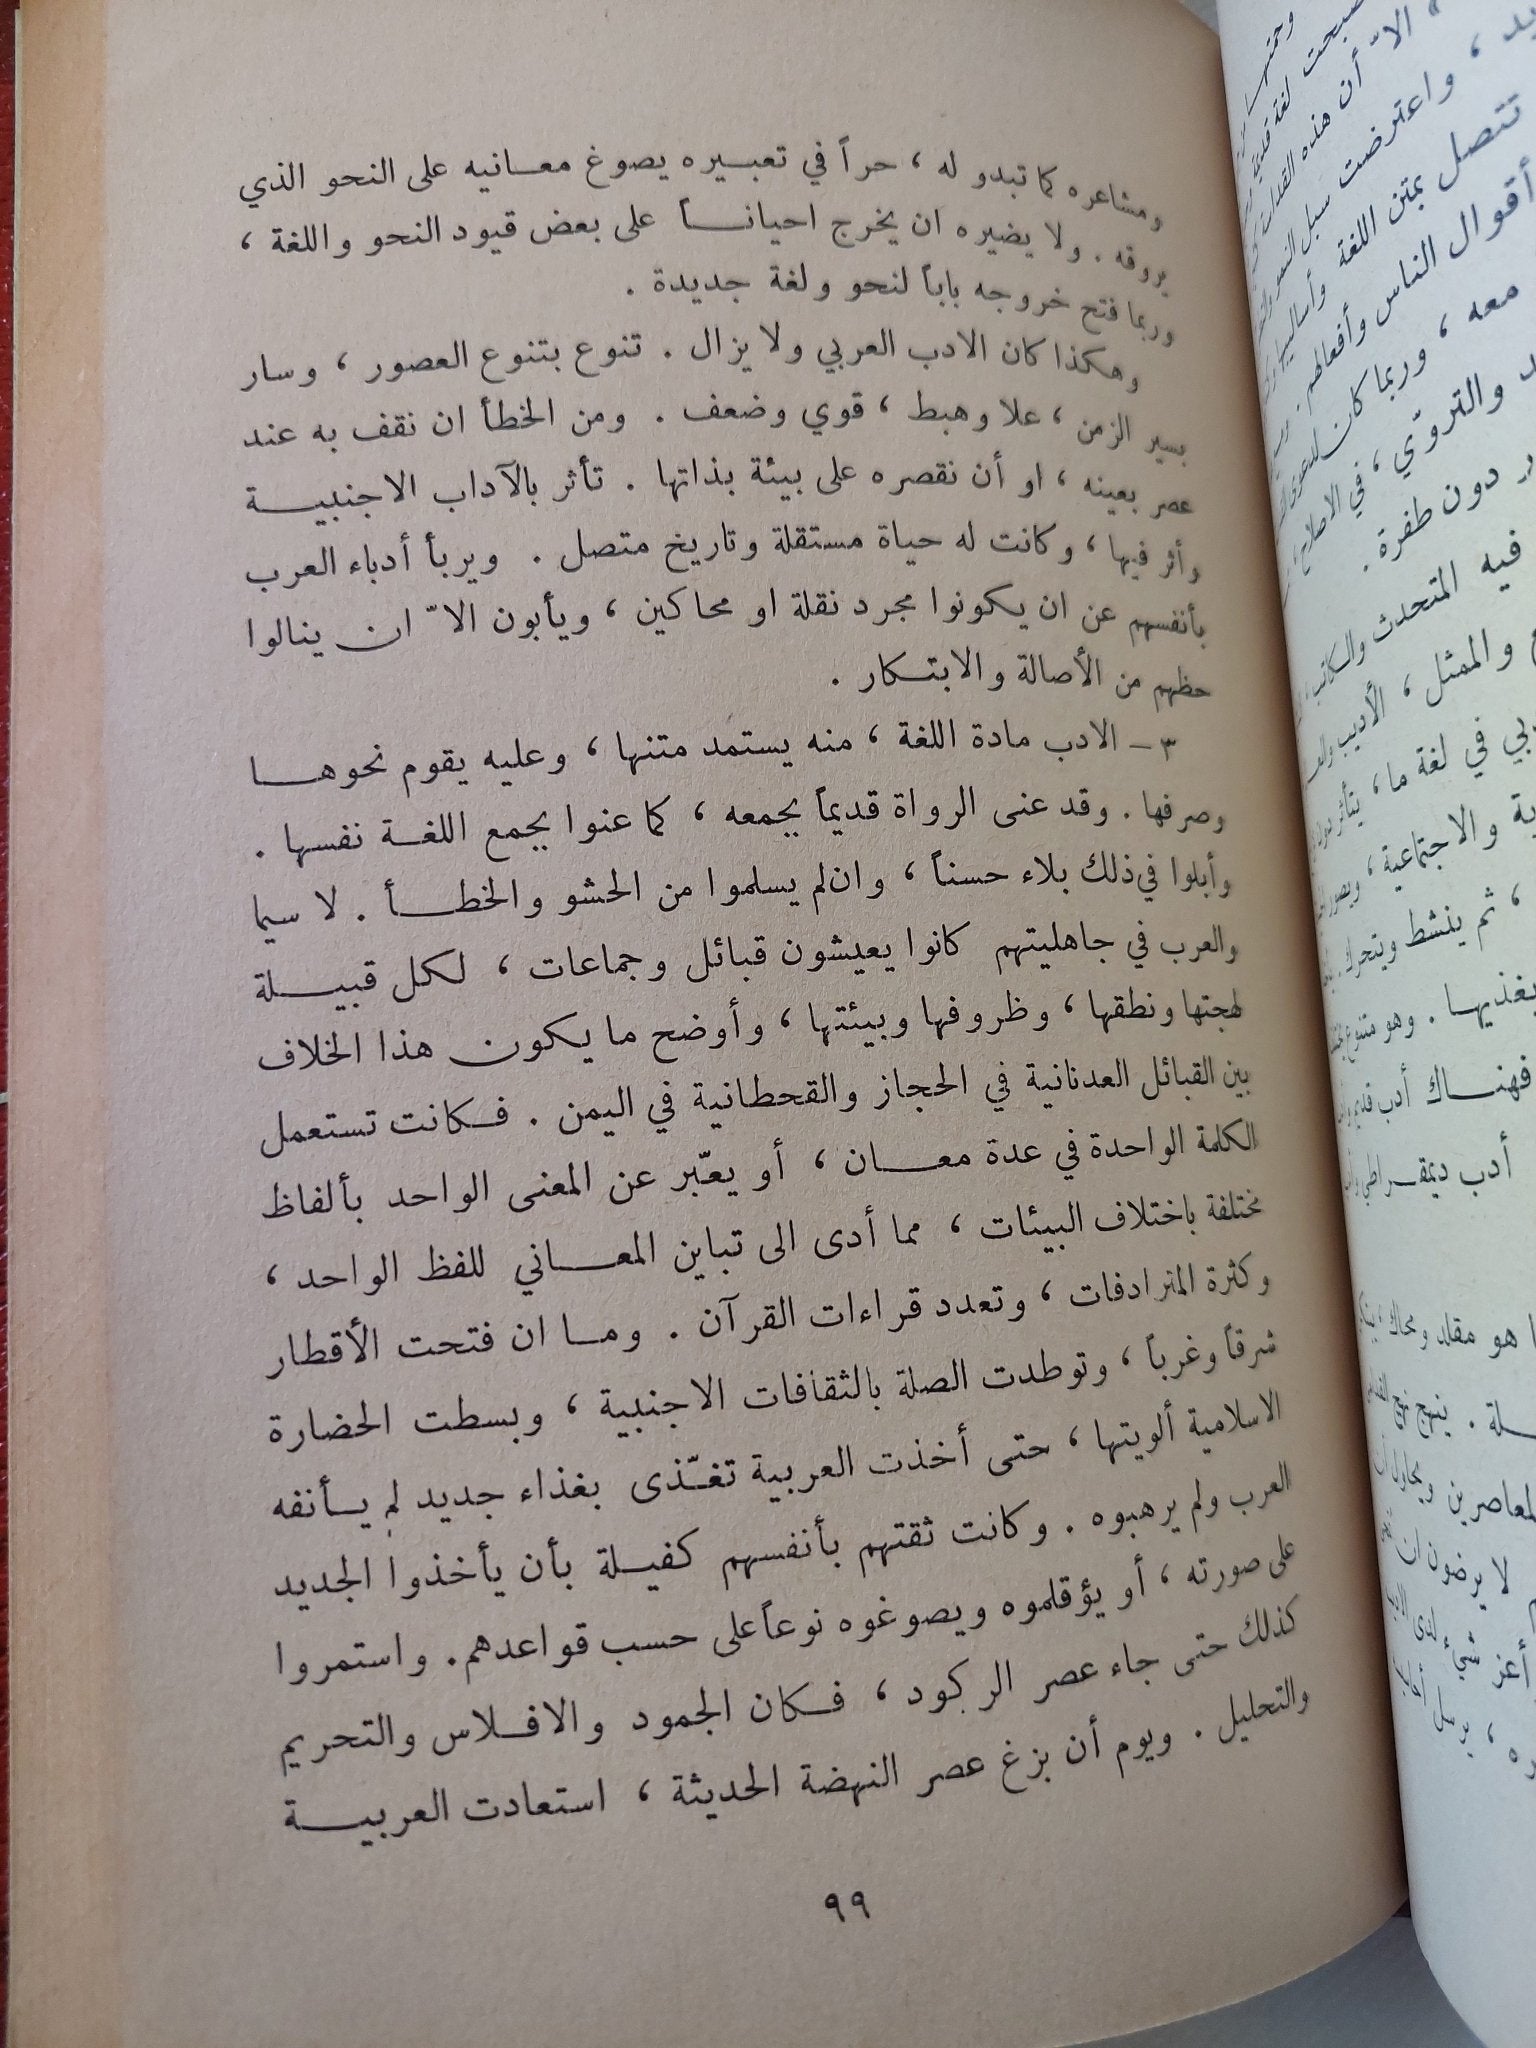 ومشاعره كما تبدو له ، حراً في تعبيره يصوغ معانيه على النحو الذي
يروقه . ولا يضيره ان يخرج احياناً على بعض قيود النحو واللغة ،
وربما فتح خروجه باباً لنحو ولغة جديدة .
وهكذا كان الادب العربي ولا يزال . تنوع بتنوع العصور ، وسار
بسير الزمن ، علا وهبط ، قوي وضعف . ومن الخطأ ان نقف به عند
عصر بعينه ، او أن نقصره على بيئة بذاتها . تأثر بالآداب الاجنبية
وأثر فيها ، وكانت له حياة مستقلة وتاريخ متصل . ويربأ أدباء العرب
بأنفسهم عن ان يكونوا مجرد نقلة او محاكين ، ويأبون الاّ ان ينالوا
حظهم من الأصالة والابتكار .
٣ – الادب مادة اللغة ، منه يستمد متنها ، وعليه يقوم نحوها
وصرفها . وقد عنى الرواة قديماً بجمعه ، كما عنوا بجمع اللغة نفسها .
وأبلوا في ذلك بلاء حسناً ، وان لم يسلموا من الحشو والخطأ . لا سيما
والعرب في جاهليتهم كانوا يعيشون قبائل وجماعات ، لكل قبيلة
لهجتها ونطقها ، وظروفها وبيئتها ، وأوضح ما يكون هذا الخلاف
بين القبائل العدنانية في الحجاز والقحطانية في اليمن . فكانت تستعمل
الكلمة الواحدة في عدة معان ، أو يعبّر عن المعنى الواحد بألفاظ
مختلفة باختلاف البيئات ، مما أدى الى تباين المعاني للفظ الواحد ،
وكثرة المترادفات ، وتعدد قراءات القرآن . وما ان فتحت الأقطار
شرقاً وغرباً ، وتوطدت الصلة بالثقافات الاجنبية ، وبسطت الحضارة
الاسلامية ألويتها ، حتى أخذت العربية تغـّذى بغذاء جديد لم يأنفه
العرب ولم يرهبوه . وكانت ثقتهم بأنفسهم كفيلة بأن يأخذوا الجديد
على صورته ، أو يؤقلموه ويصوغوه نوعاً على حسب قواعدهم . واستمروا
كذلك حتى جاء عصر الركود ، فكان الجمود والافلاس والتحريم
والتحليل . ويوم أن بزغ عصر النهضة الحديثة ، استعادت العربية
٩٩
الاّ أن هذه
واعترضت سبل
تتصل بمتن اللغة
أقوال الناس وأفعالهم .
معه ، وربما كان
والتروّي ، في الاصلاح
دون طفرة .
فيه المتحدث والكاتب ،
والممثل ، الأديب
في لغة ما ، يتأثر
والاجتماعية ، ويصور
، ثم ينشط ويتحرك .
يغذيها . وهو متنوع
فهناك أدب قديم
أدب ديمقراطي
هو مقلد ومحاك ،
ينهج نهج
ويحاول
لا يرضون
أعز شيء لدى